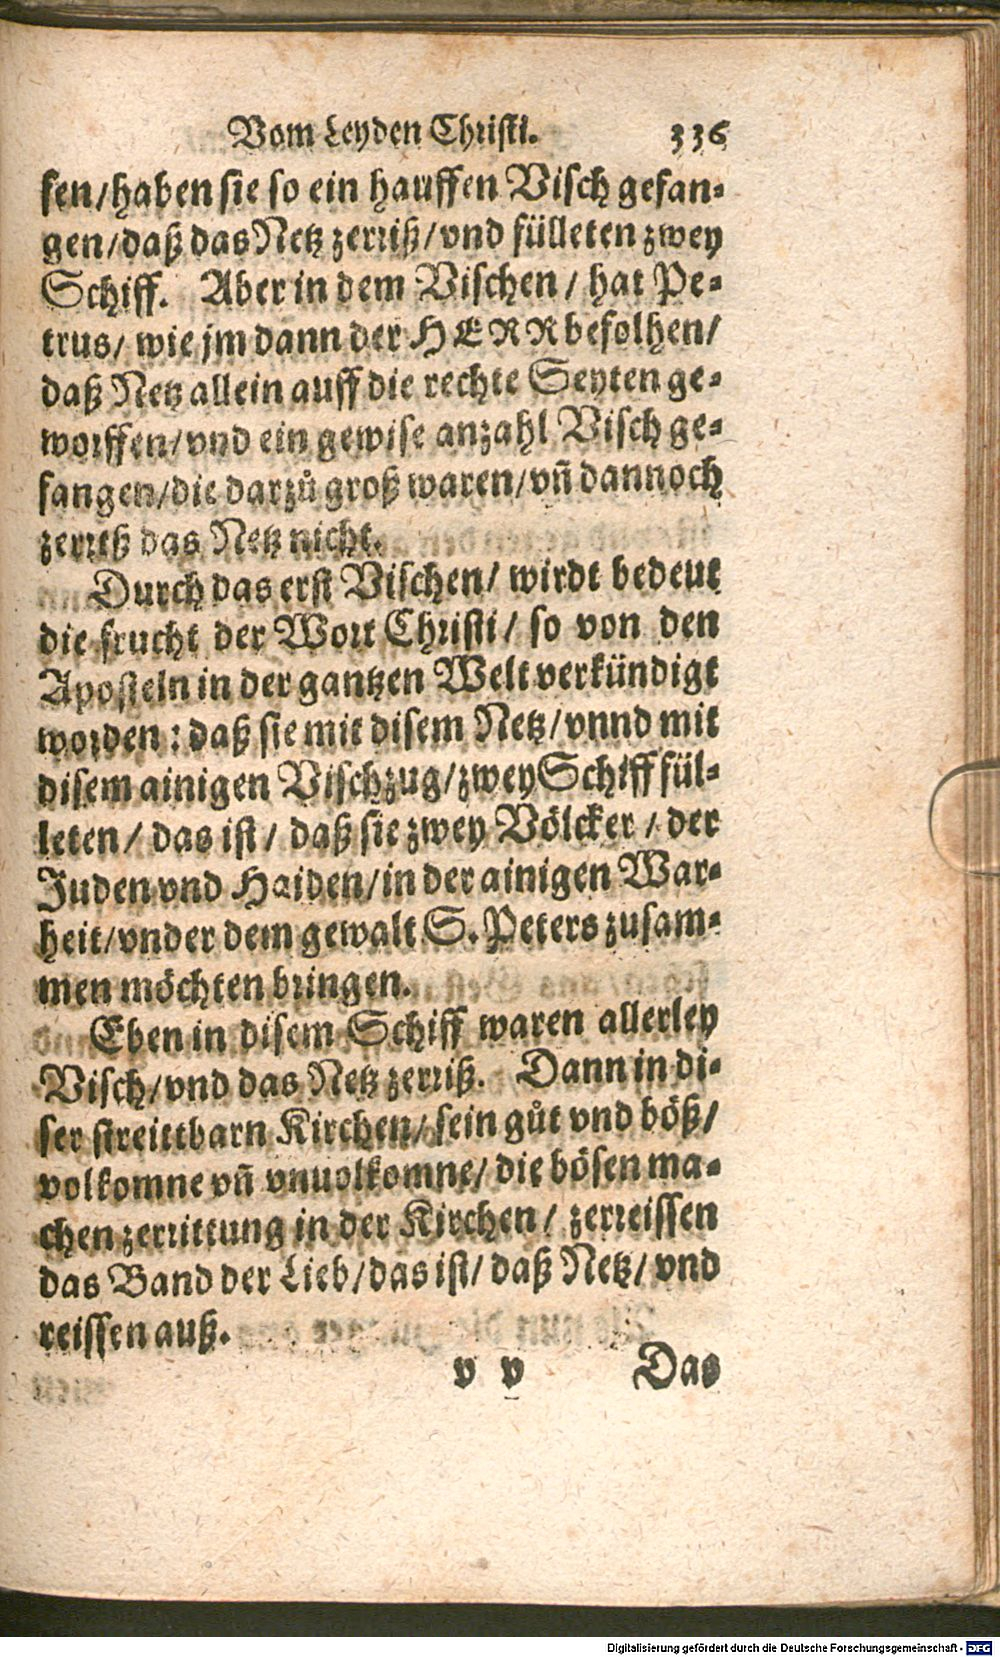 Vom Leyden Christi. 336
fen/haben sie so ein hauffen Visch gefan-
gen/daß das Netz zerriß/vnd fülleten zwey
Schiff. Aber in dem Vischen/ hat Pe-
trus/ wie jm dann der HERR befolhen/
daß Netz allein auff die rechte Seyten ge-
worffen/vnd ein gewise anzahl Visch ge-
fangen/die darzů groß waren/vñ dannoch
zerreß das Netz nicht.
Durch das erst Vischen/ wirdt bedeut
die frucht der Wort Christi/ so von den
Aposteln in der gantzen Welt verkündigt
worden: daß sie mit disem Netz/vnnd mit
disem ainigen Vischzug/zwey Schiff fül-
leten/ das ist/ daß sie zwey Völcker/ der
Juden vnd Haiden/in der ainigen War-
heit/vnder dem gewalt S. Peters zusam-
men möchten bringen.
Eben in disem Schiff waren allerley
Visch/vnd das Netz zerriß. Dann in di-
ser streittbarn Kirchen/sein gůt vnd böß/
volkomne vñ vnuolkomne/ die bösen ma-
chen zerrittung in der Kirchen/ zerreissen
das Band der Lieb/das ist/ daß Netz/ vnd
reissen auß.
v v Das
Digitalisierung gefördert durch die Deutsche Forschungsgemeinschaft - DFG